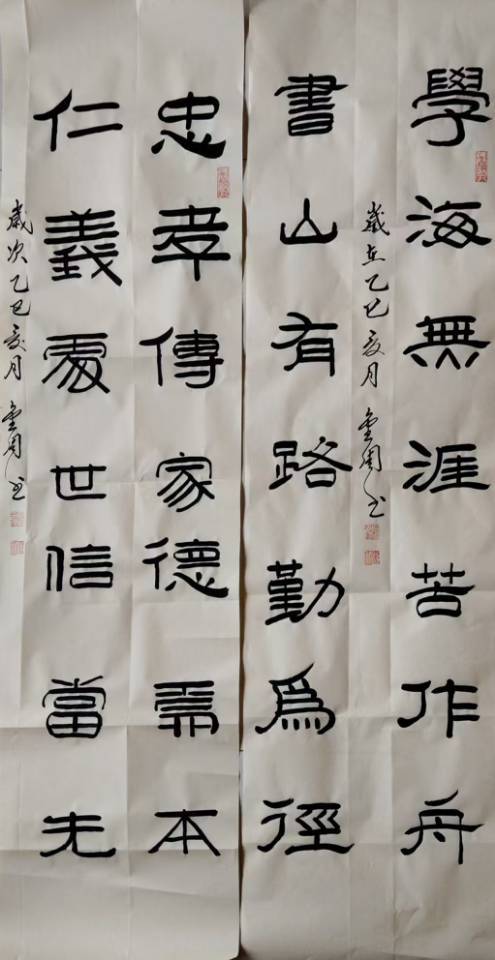 學海無涯苦作舟
歲在乙巳夏月
書山有路勤爲徑
忠孝傳家德需本
仁義處世信當先
歲次乙巳夏月